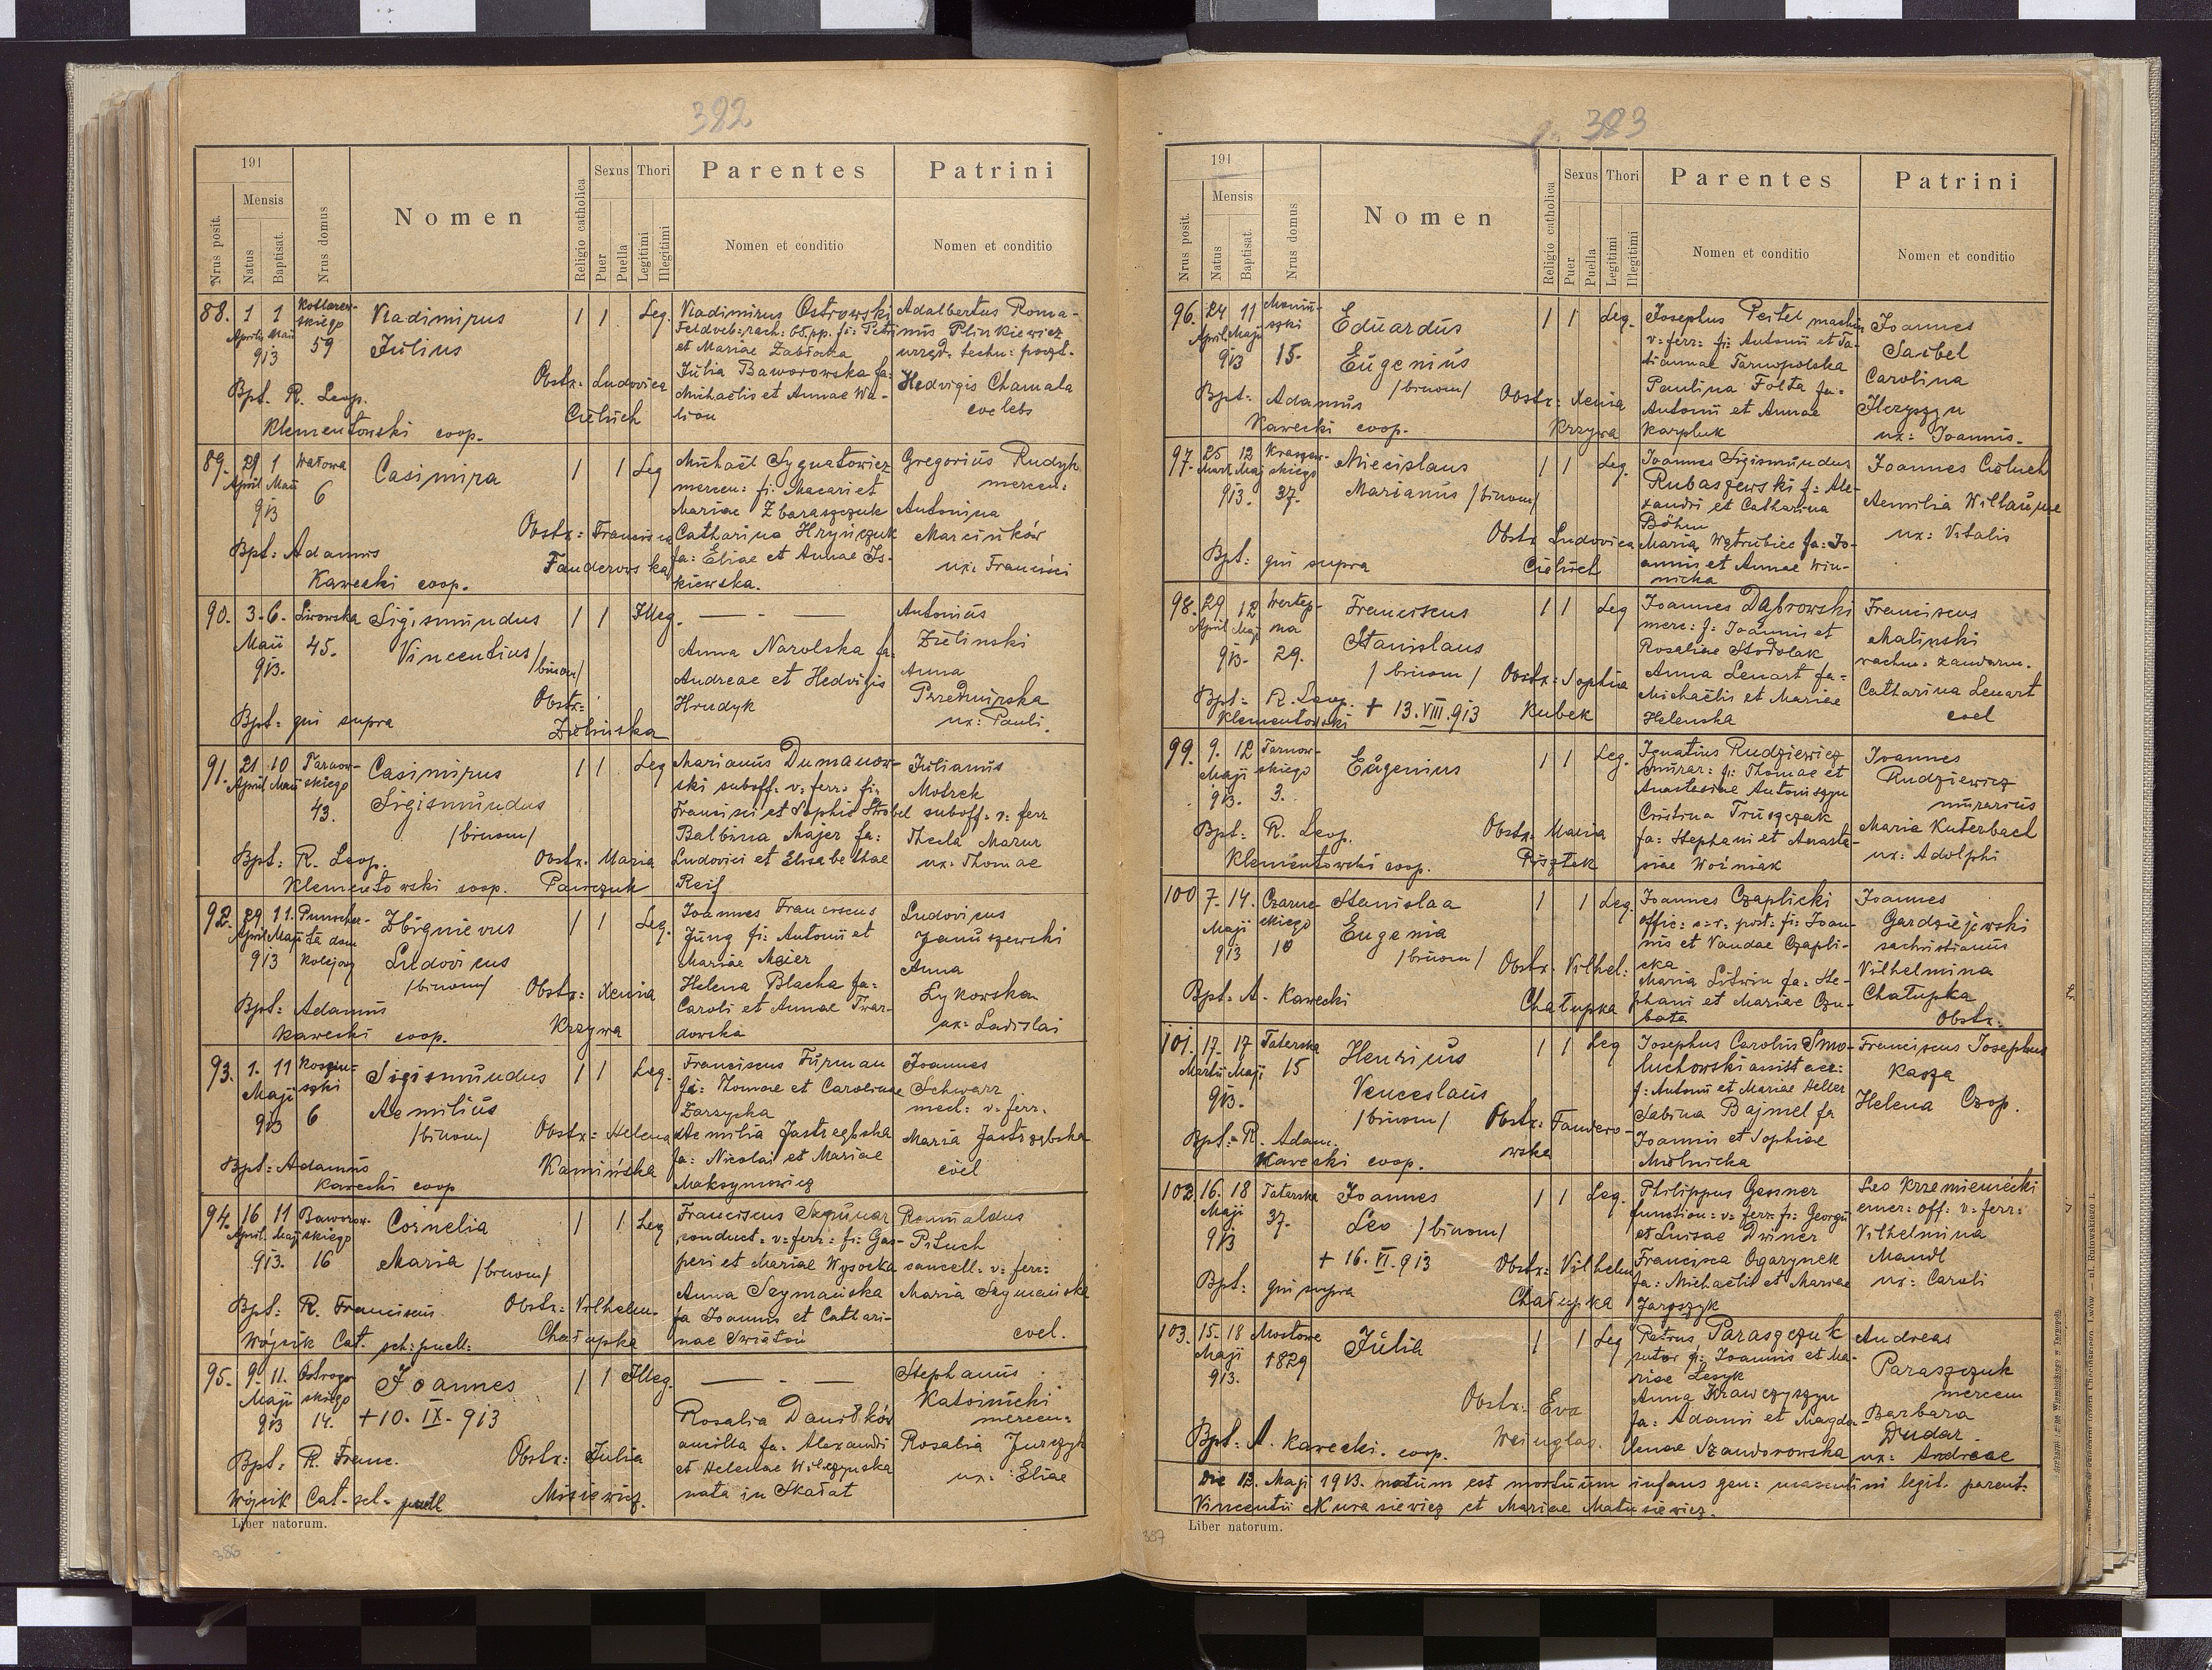 382
191
Mensis
Nrus posit.
Natus
Baptisat.
Nrus domus
Nomen
Religio catholica
Sexus
Puer
Puella
Thori
Legitimi
Illegitimi
Parentes
Nomen et conditio
Patrini
Nomen et conditio
88. 1 1 Kotlarew-
skiego
Aprilis Maii
913 59
Vladimirus
Julius
1 1 Leg.
Vladimirus Ostrowski
Feldveb: rach: 65. pp. fi: Petri
et Mariae Zabłocka
Julia Baworowska fa:
Michaëlis et Annae Wa-
lion
Adalbertus Roma-
nus Plinkiewicz
urzęd. techn: poczt.
Hedvigis Chamala
coelebs
Obstx: Ludovica
Cieluch
Bpt. R. Leop.
Klementowski coop.
89. 29 1 Wałowa
April Maii 6
913
Casimira
1 1 Leg
Michaël Sygnatowicz
mercen: fi: Macari et
Mariae Zbaraszczuk
Catharina Hryńczuk
fa: Eliae et Annae Is-
kiewska.
Gregorius Rudyk
mercen:
Antonina
Marcinków
ux: Francisci
Obstx: Francisca
Fanderowska
Bpt: Adamus
Kawecki coop.
90. 3. 6. Lwowska
Maii 45.
913.
Sigismundus
Vincentius /binom/
1 1 Illeg.
Anna Narolska fa:
Andreae et Hedvigis
Hrudyk
Antonius
Zielinski
Anna
Przedmirska
ux: Pauli.
Obstx:
Zielinska
Bpt: qui supra
91. 21 10 Tarnow-
April Maii skiego
43.
Casimirus
Sigismundus
/binom/
1 1 Leg
Marianus Dumanow-
ski suboff: v: ferr: fi:
Francisci et Sophie Strobel
Balbina Majer fa:
Ludovici et Elisabethae
Reif
Julianus
Motrek
suboff: v: ferr
Thecla Mazur
ux: Thomae
Obstx: Maria
Pawczuk
Bpt: R. Leop.
Klementowski coop.
92. 29 11. Puncher-
April Maji ta dom
913 kolejowy
Zbignievus
Ludovicus
/binom/
1 1 Leg.
Joannes Franciscus
Jung fi: Antonii et
Mariae Maier
Helena Blacha fa:
Caroli et Annae Twar-
dowska
Ludovicus
Januszewski
Anna
Lykowska
ux: Ladislai
Obstx: Xenia
Krzywa
Bpt: Adamus
Kawecki coop.
93. 1. 11 Kosciu-
Maji szki
913 6
Sigismundus
Aemilius
/binom/
1 1 Leg.
Franciscus Furman
fi: Thomae et Carolinae
Zarzycka
Aemilia Jastrzębska
fa: Nicolai et Mariae
Maksymowicz
Joannes
Schwarz
mecl: v: ferr.
Maria Jastrzębska
coel
Obstx: Helena
Kamińska
Bpt: Adamus
Kawecki coop
94. 16 11 Baworow-
April. Maji skiego
913. 16
Cornelia
Maria /binom/
1 1 Leg
Franciscus
conduct: v: ferr: fi: Gas-
peri et Mariae Wysocka
Anna Szymańska
fa Joannis et Cathari-
nae Swiatoń
Romualdus
Piluch
cancell: v: ferr:
Maria Szymańska
coel.
Obstx: Vilhelm.
Chałupka
Bpt: R. Franciscus
Wójcik Cat. sch: puell:
95. 9. 11. Ostrogo
Maji skiego
913 14.
Joannes
+ 10. IX. 913
1 1 Illeg.
Rosalia Daniłków
ancilla fa: Alexandri
et Helenae Wilczynska
nata in Skałat
Stephanus
Katoinicki
mercen:
Rosalia Jurczyk
ux: Eliae
Obstx: Julia
Misiewicz.
Bpt: R. Franc.
Wójcik Cat. sch. puell
Liber natorum.
386
383
191
Mensis
Nrus posit.
Natus
Baptisat.
Nrus domus
Nomen
Religio catholica
Sexus
Puer
Puella
Thori
Legitimi
Illegitimi
Parentes
Nomen et conditio
Patrini
Nomen et conditio
96. 24 11 Moniu-
April Maji szki
913 15.
Eduardus
Eugenius
/binom/
1 1 Leg.
Josephus Peitel machin
v: ferr: fi: Antonii et Ta-
tiannae Tarnopolska
Paulina Folta fa:
Antonii et Annae
Karpluk
Joannes
Saibel
Carolina
Hryszyn
ux: Joannis.
Obstx: Xenia
Krzywa
Bpt: Adamus
Kawecki coop.
97. 25 12 Kraszew-
Marti Maji skiego
913. 37.
Miecislaus
Marianus /binom/
1 1 Leg.
Joannes Sigismundus
Rubaszewski f: Ale-
xandri et Catharina
Böhm
Maria Wątrubiec fa: Jo-
annis et Annae Win-
nicka
Joannes Cieluch
Aemilia Willaume
ux: Vitalis
Obstx Ludovica
Cieluch
Bpt: qui supra
98. 29 12 Wertep-
April Maji na
913. 29.
Franciscus
Stanislaus
/binom/
+ 13. VIII. 913
1 1 Leg
Joannes Dąbrowski
merc: f: Joannis et
Rosaliae Stodolak
Anna Lenart fa:
Michaëlis et Mariae
Helenska
Franciscus
Malinski
wachm: żandarm.
Catharina Lenart
coel
Obstx: Sophia
Kubek
Bpt: R. Leop.
Klementowski
99. 9. 12 Tarnow-
Maji skiego
913. 3.
Eugenius
1 1 Leg.
Ignatius Rudziewicz
murar: fi: Thomae et
Anastasiae Antoniszyn
Cristina Truszczak
fa: Stephani et Anasta-
siae Woźniak
Joannes
Rudziewicz
murarius
Maria Kuterbach
ux: Adolphi
Obstx: Maria
Rysztek
Bpt: R. Leop.
Klementowski coop.
100 7. 14. Czarne-
Maji ckiego
913 10
Stanislaa
Eugenia
/binom/
1 1 Leg.
Joannes Czaplicki
offic: c: r. post: fi: Joan-
nis et Vandae Czapli-
cka
Maria Litwin fa: Ste-
phani et Mariae Czu-
bata
Joannes
Gardziejewski
sachristianus
Vilhelmina
Chałupka
Obstx.
Obstx: Vilhel:
Chałupka
Bpt: A. Kawecki
101. 17. 17 Tatarska
Martii Maji 15
913.
Henrius
Venceslaus
/binom/
1 1 Leg
Josephus Carolus Smo-
luchowski assist acc:
f: Antonii et Mariae Heller
Sabina Bajmel fa
Joannis et Sophiae
Mielnicka
Franciscus Josephus
Kasza
Helena Czop.
Obstx: Fandero-
wska
Bpt: R. Adam.
Kawecki coop.
102. 16. 18 Tatarska
Maji 37.
913
Joannes
Leo /binom/
+ 16. VI. 913
1 1 Leg.
Philippus Gessner
function: v: ferr: fi: Georgii
et Luisae Dwiner
Francisca Ogarynek
fa: Michaëlis et Mariae
Jaroszyk
Leo Krzemieniecki
emer: off: v: ferr:
Vilhelmina
Mandl
ux: Caroli
Obstx: Vilhelm
Chałupka
Bpt: qui supra
103. 15. 18 Mostowe
Maji 1829
913.
Julia
1 1 Leg
Petrus Paraszczuk
sutor fi: Joannis et Ma-
riae Lesyk
Anna Krawczyszyn
fa: Adami et Magda-
lenae Szandorowska
Andreas
Paraszczuk
mercen
Barbara
Dudar.
ux: Andreae
Obstx. Eva
Weinglas.
Bpt: A. Kawecki. coop.
Die 13. Maji 1913. natum est mortuum infans gen: masculini legit. parent:
Vincentii Kurasiewicz et Mariae Matusiewicz.
Liber natorum.
387